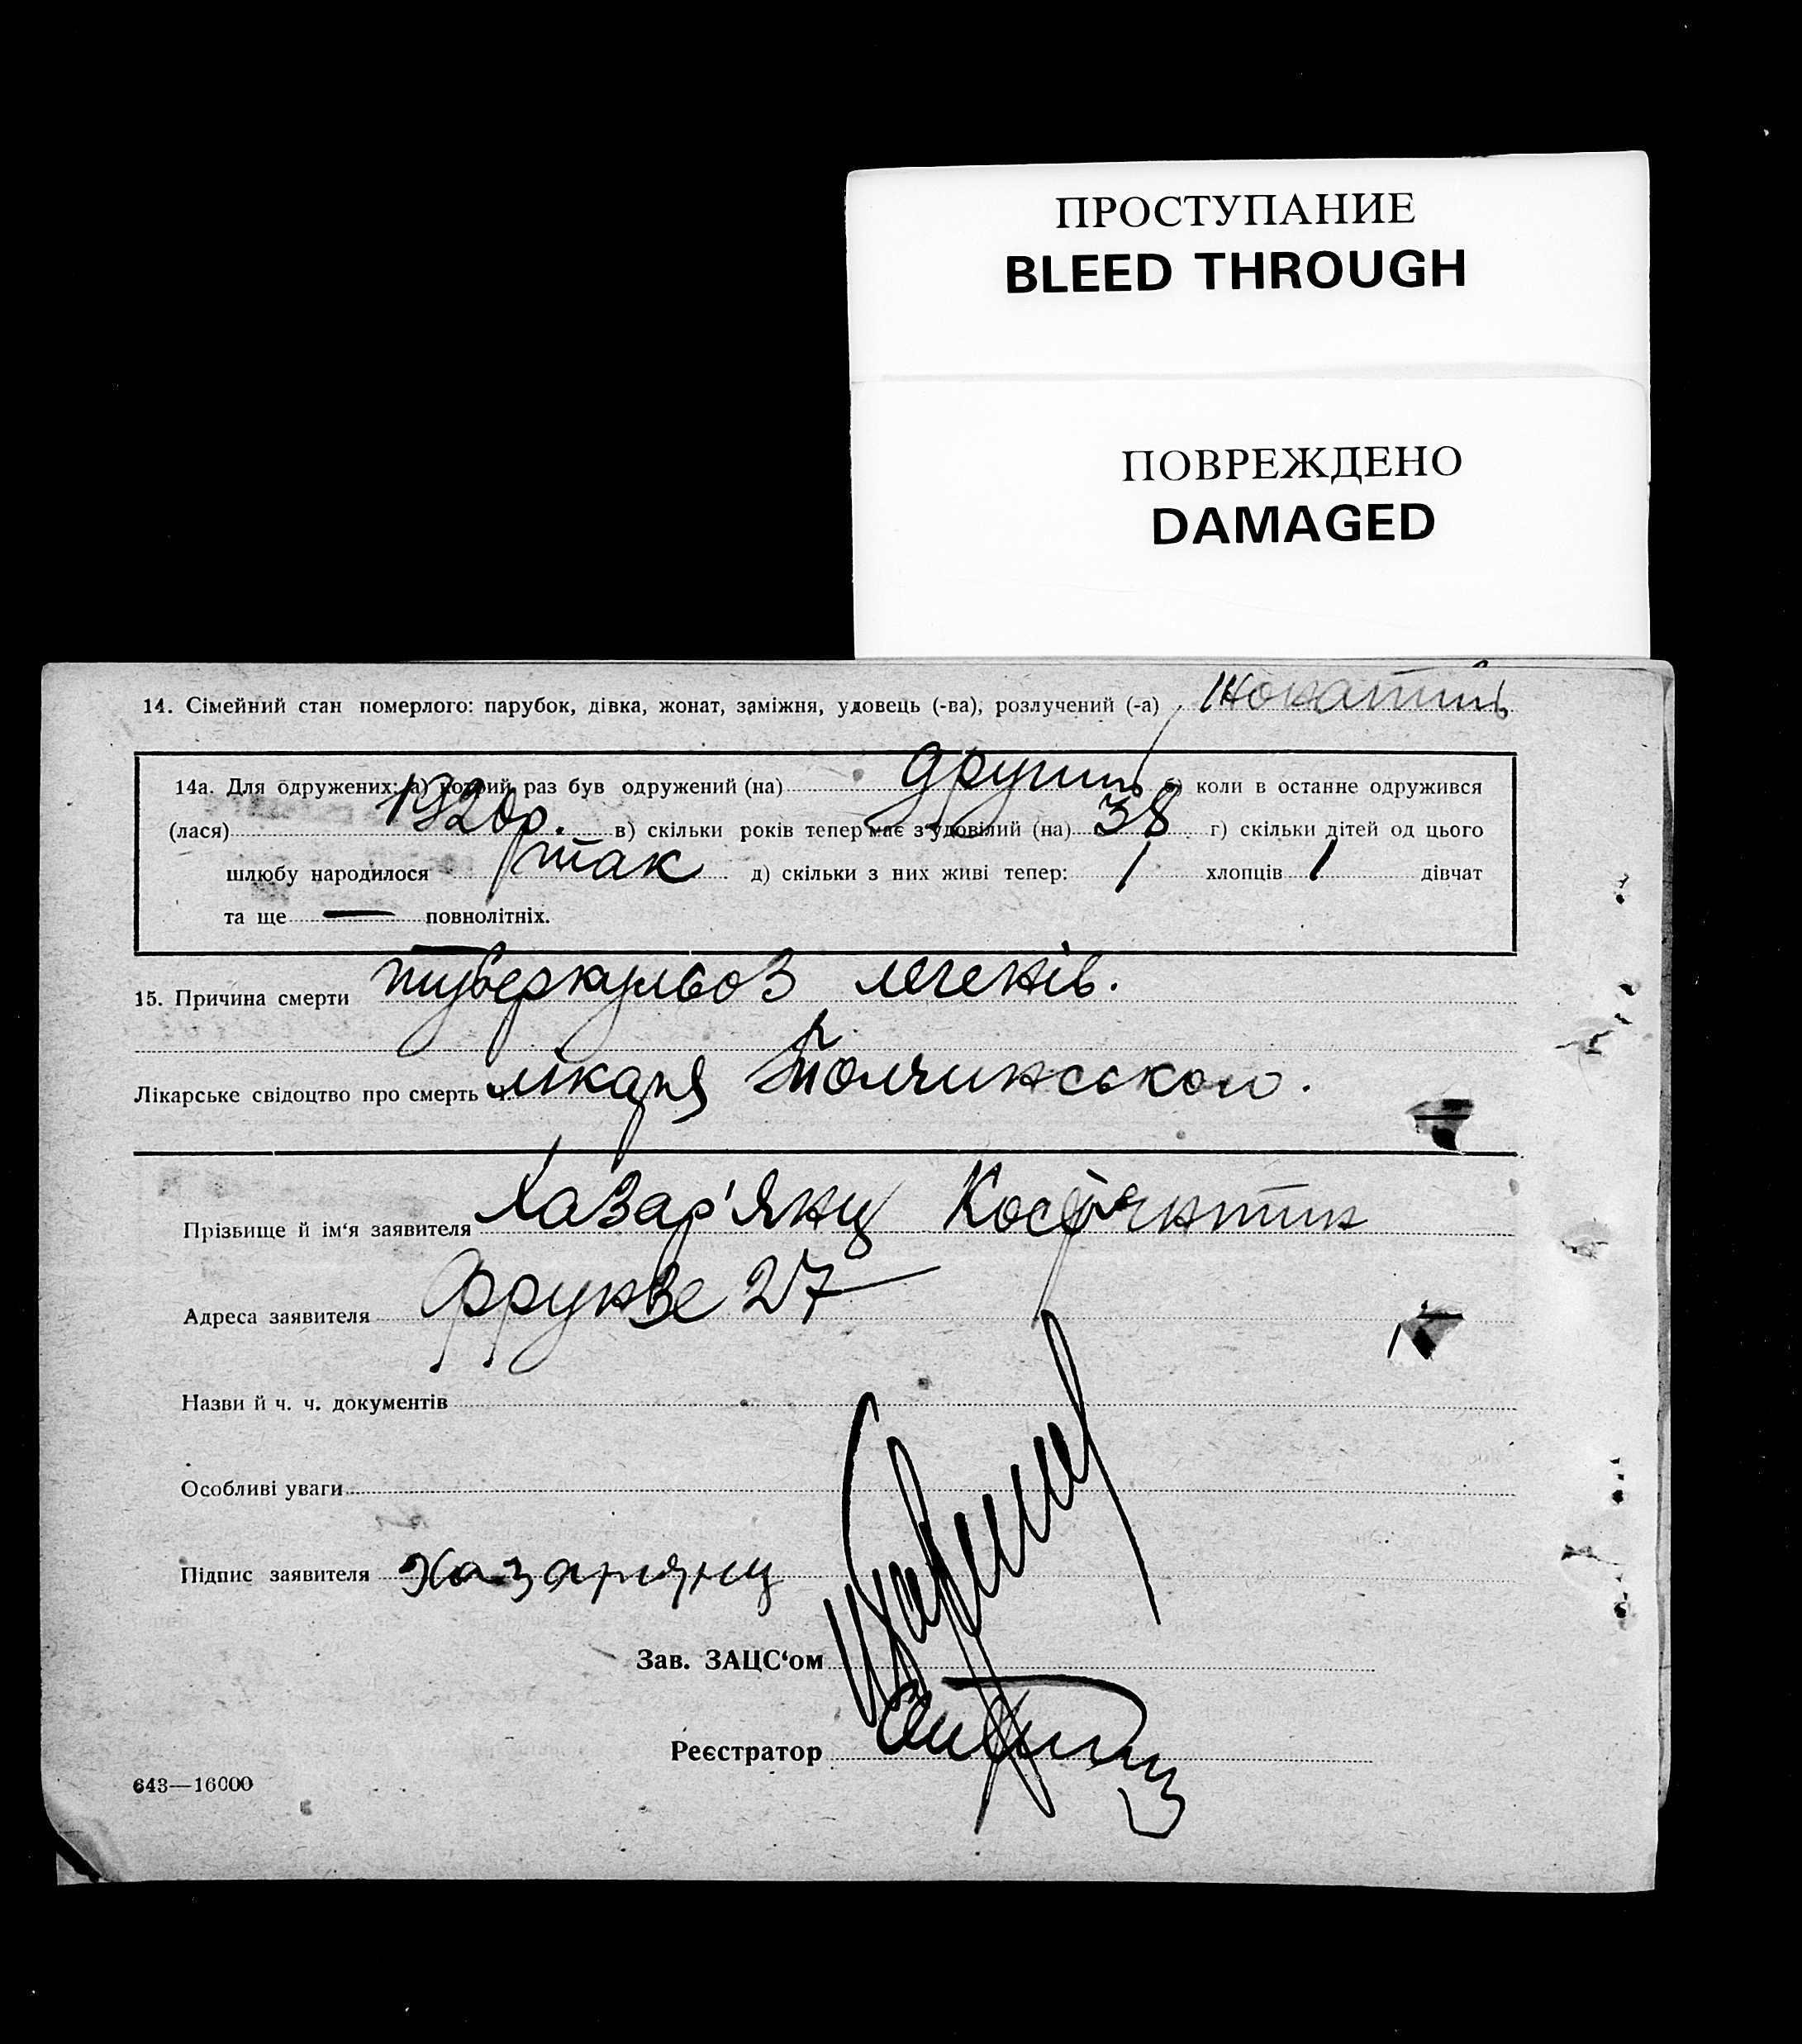 ПРОСТУПАНИЕ
BLEED THROUGH
ПОВРЕЖДЕНО
DAMAGED
14. Сімейний стан померлого: парубок, дівка, жонат, заміжня, удовець (-ва), розлучений (-а) жонатий
14а. Для одружених: а) котрий раз був одружений (на) другий б) коли в останне одружився
(лася) 1920р. в) скільки років тепер має з удовілий (на) 38 г) скільки дітей од цього
шлюбу народилося так д) скільки з них живі тепер: 1 хлопців 1 дівчат
та ще — повнолітніх.
15. Причина смерти туберкульоз легенів.
Лікарське свідоцтво про смерть лікаря Толчинського.
Прізвище й ім‘я заявителя Хазар'янц Костянтин
Адреса заявителя Фрунзе 27
Назви й ч. ч. документів
Особливі уваги
Підпис заявителя Хазарянц
Зав. ЗАЦС‘ом
Реєстратор
643—16000